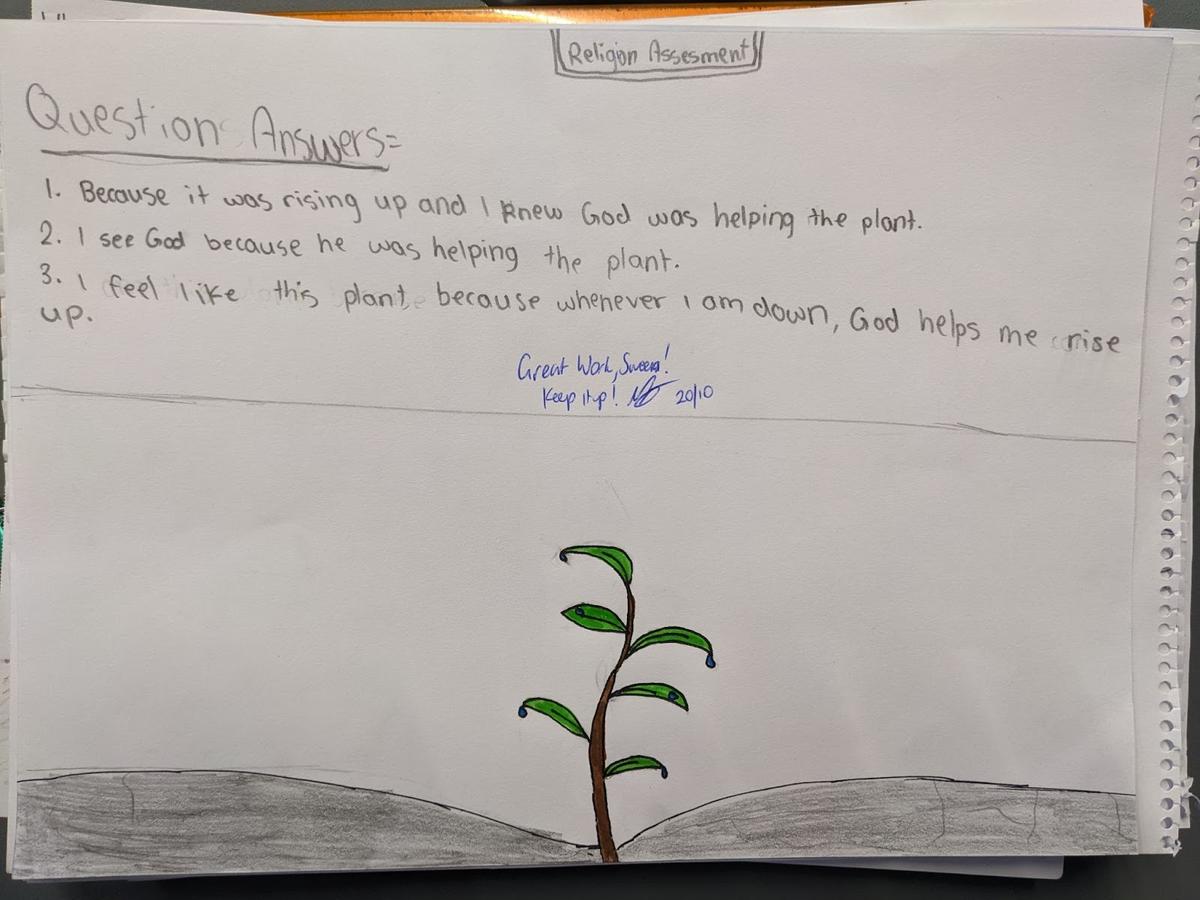 Religion Assesment
Question Answers=
1. Because it was rising up and I knew God was helping the plant.
2. I see God because he was helping the plant.
3. I feel like this plant because whenever I am down, God helps me rise
up.
Great Work,
Keep it up! 20/10